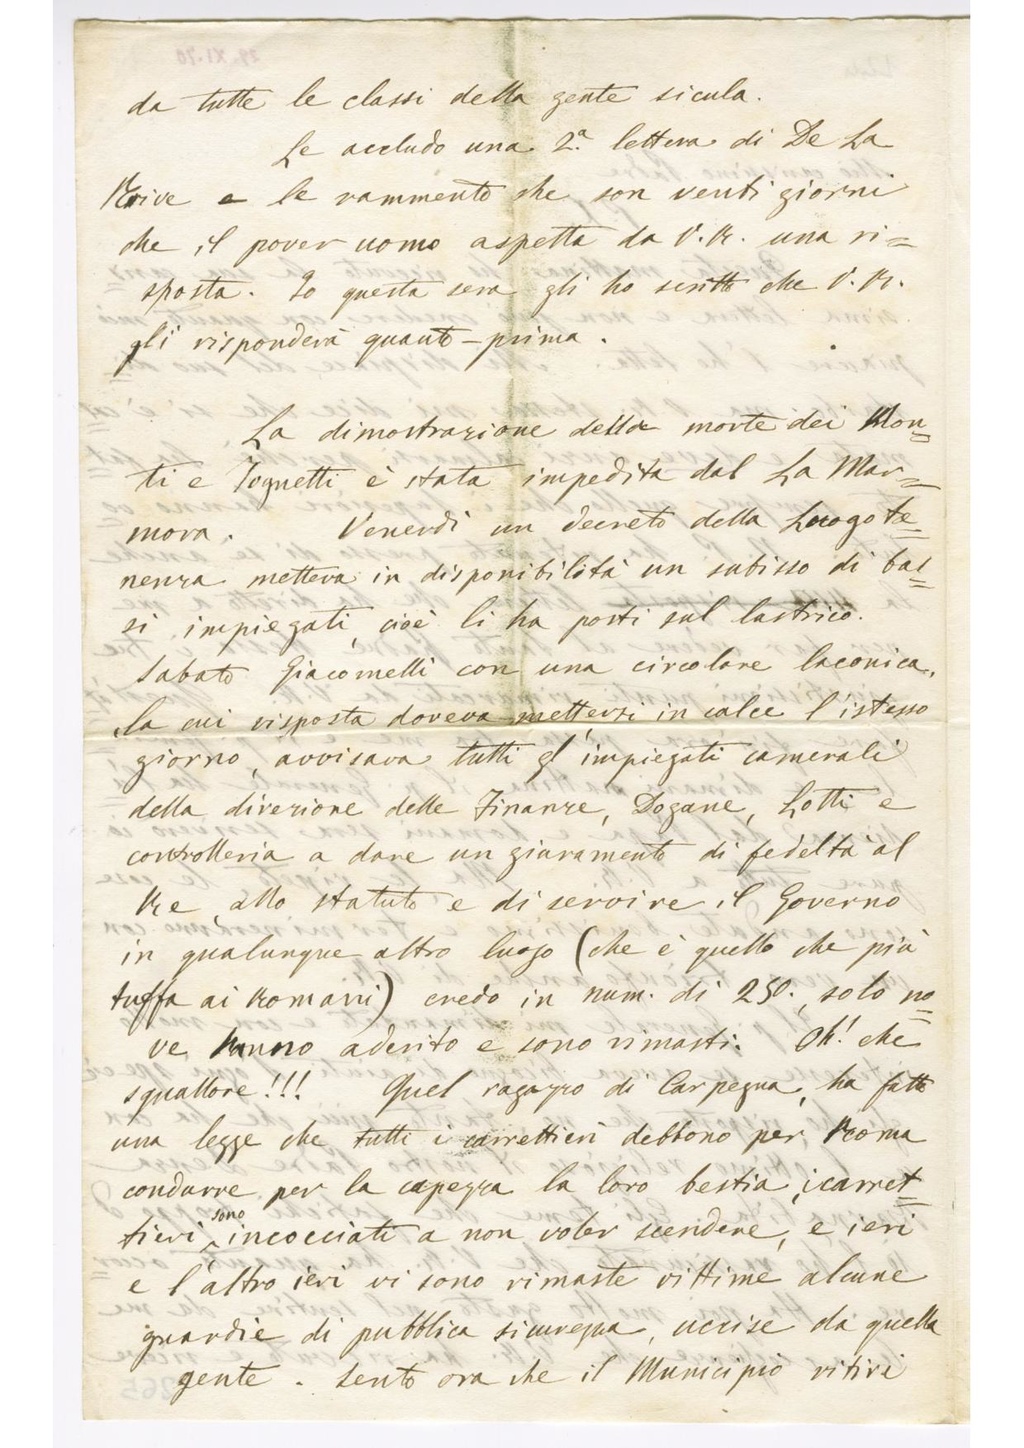 da tutte le classi della gente sicula.
Le accludo una 2.ª lettera di De La
Rive e le rammento che son venti giorni
che il pover uomo aspetta da V. R. una ri=
sposta. Io questa sera gli ho scritto che V. R.
gli risponderà quanto-prima.
La dimostrazione della morte dei Mon=
ti e Tognetti è stata impedita dal La Mar=
mora. Venerdì un decreto della Luogote=
nenza metteva in disponibilità un subisso di bas=
si impiegati, cioè li ha posti sul lastrico.
Sabato Giacomelli con una circolare laconica,
la cui risposta doveva mettersi in calce l'istesso
giorno, avvisava tutti gl'impiegati camerali
della direzione delle Finanze, Dogane, Lotti e
controlleria a dare un giuramento di fedeltà al
Re, allo statuto e di servire il Governo
in qualunque altro luogo (che è quello che più
tuffa ai Romani) credo in num. di 250., solo no=
ve hanno aderito e sono rimasti. Oh! che
squallore!!! Quel ragazzo di Carpegna, ha fatto
una legge che tutti i carrettieri debbono per Roma
condurre per la capezza la loro bestia, i carret=
tieri sono incocciati a non voler scendere, e ieri
e l'altro ieri vi sono rimaste vittime alcune
guardie di pubblica sicurezza, uccise da quella
gente. Sento ora che il Municipio ritiri